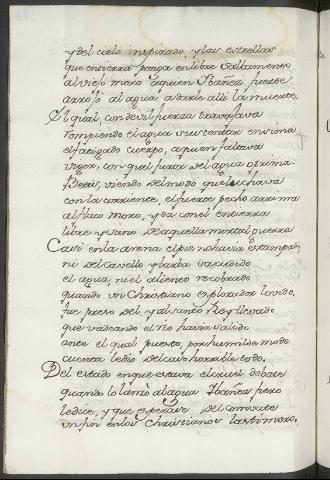 y del cielo inspirado, y las estrellas
que en tierra ponga en libre salta
al viejo moro a quien Ibañez fuerte
arrojó al agua a darle allí la muerte.
El qual, con devil fuerza travajava
rompiendo el agua sustentar en sima
el fatigado cuerpo, a quien faltava
vigor, con que el furor del agua oprima
Betis, viendo del modo que luchava
con la corriente, el fuerte pecho arrima
al flaco moro, y da con el en tierra
libre y sano de aquella mortal guerra
Casi en la arena el pie no havia estampado,
ni del cavello y barba sacudido
el agua, ni el aliento recobrado
quando un Christiano explorador lo vido,
fue preso del, y al santo Rey llevado
que vadeando el rio havia salido
ante el qual puesto, por humilde modo
cuenta le dio del caso horrible todo.
Del estado en que estava el cruel debate
quando lo lanzó al agua Ibañez fiero
le dice, y que espera del combate
un fin en los Christianos lastimero,